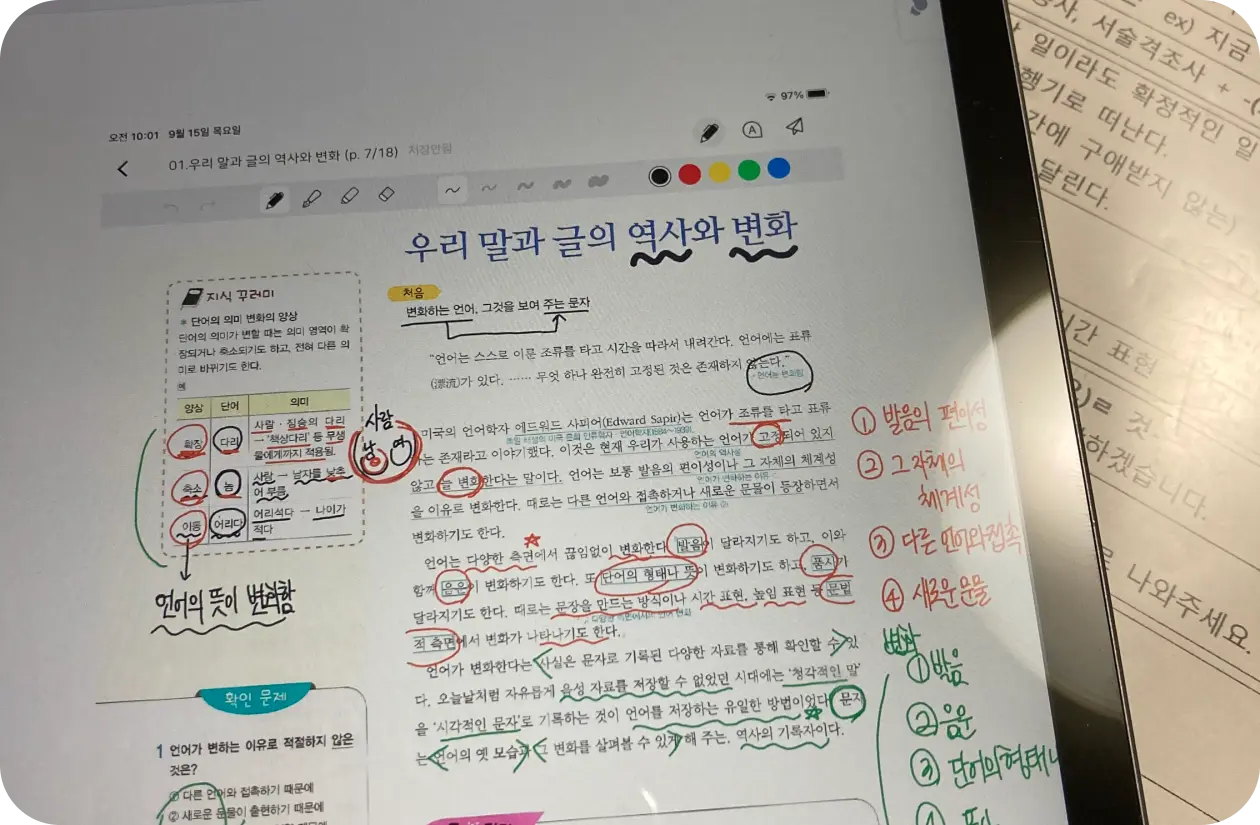 오전 10:01 9월 15일 목요일
97%
01.우리 말과 글의 역사와 변화 (p. 7/18) 저장안됨
우리 말과 글의 역사와 변화
지식 꾸러미
단어의 의미 변화의 양상
단어의 의미가 변할 때는 의미 영역이 확
장되거나 축소되기도 하고, 전혀 다른 의
미로 바뀌기도 한다.
예
양상 단어 의미
확장 다리 사람·짐승의 다리
→ '책상다리' 등 무생
물에게까지 적용됨.
축소 놈 사람 → 남자를 낮추
어 부름
이동 어리다 어리석다 → 나이가
적다
사람
남 여
언어의 뜻이 변화함
확인 문제
1 언어가 변하는 이유로 적절하지 않은
것은?
① 다른 언어와 접촉하기 때문에
② 새로운 문물이 출현하기 때문에
처음
변화하는 언어, 그것을 보여 주는 문자
"언어는 스스로 이룬 조류를 타고 시간을 따라서 내려간다. 언어에는 표류
(漂流)가 있다. …… 무엇 하나 완전히 고정된 것은 존재하지 않는다."
언어는 변화함
미국의 언어학자 에드워드 사피어(Edward Sapir)는 언어가 조류를 타고 표류
독일 태생의 미국 문화 인류학자·언어학자(1884~1939).
하는 존재라고 이야기했다. 이것은 현재 우리가 사용하는 언어가 고정되어 있지
언어의 역사성
않고 늘 변화한다는 말이다. 언어는 보통 발음의 편이성이나 그 자체의 체계성
언어가 변화하는 이유
을 이유로 변화한다. 때로는 다른 언어와 접촉하거나 새로운 문물이 등장하면서
언어가 변화하는 이유 ②
변화하기도 한다.
언어는 다양한 측면에서 끊임없이 변화한다. 발음이 달라지기도 하고, 이와
함께 음운이 변화하기도 한다. 또 단어의 형태나 뜻이 변화하기도 하고, 품사가
달라지기도 한다. 때로는 문장을 만드는 방식이나 시간 표현, 높임 표현 등 문법
다양한 측면에서의 언어 변화
적 측면에서 변화가 나타나기도 한다.
언어가 변화한다는 사실은 문자로 기록된 다양한 자료를 통해 확인할 수 있
다. 오늘날처럼 자유롭게 음성 자료를 저장할 수 없었던 시대에는 '청각적인 말'
을 '시각적인 문자'로 기록하는 것이 언어를 저장하는 유일한 방법이었다. 문자
는 언어의 옛 모습과 그 변화를 살펴볼 수 있게 해 주는, 역사의 기록자이다.
① 발음의 편이성
② 그 자체의
체계성
③ 다른 언어와 접촉
④ 새로운 문물
변화
① 발음
② 음운
③ 단어의 형태나
ex) 지금
서술격조사 + -(
일이라도 확정적인 일
행기로 떠난다.
간에 구애받지 않는)
달린다.
시간 표현
하겠습니다.
나와주세요.